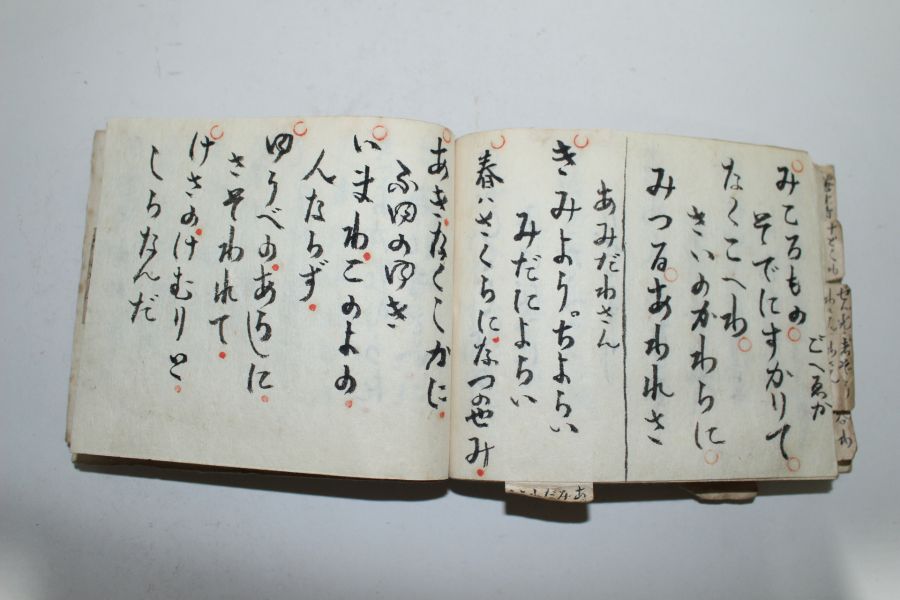 みこるもの
そでにすがりて
ごへゑか
なくこへわ
さいのかわらに
みつるあわれさ
あみだわさん
きみようちようらい
みだによらい
春ハさくらに。なつのせみ
あきなくしかに
ふゆのゆき
いまわこのよの
人ならず
ゆうべのあらしに
さそわれて
けさのけむりと
しらなんだ